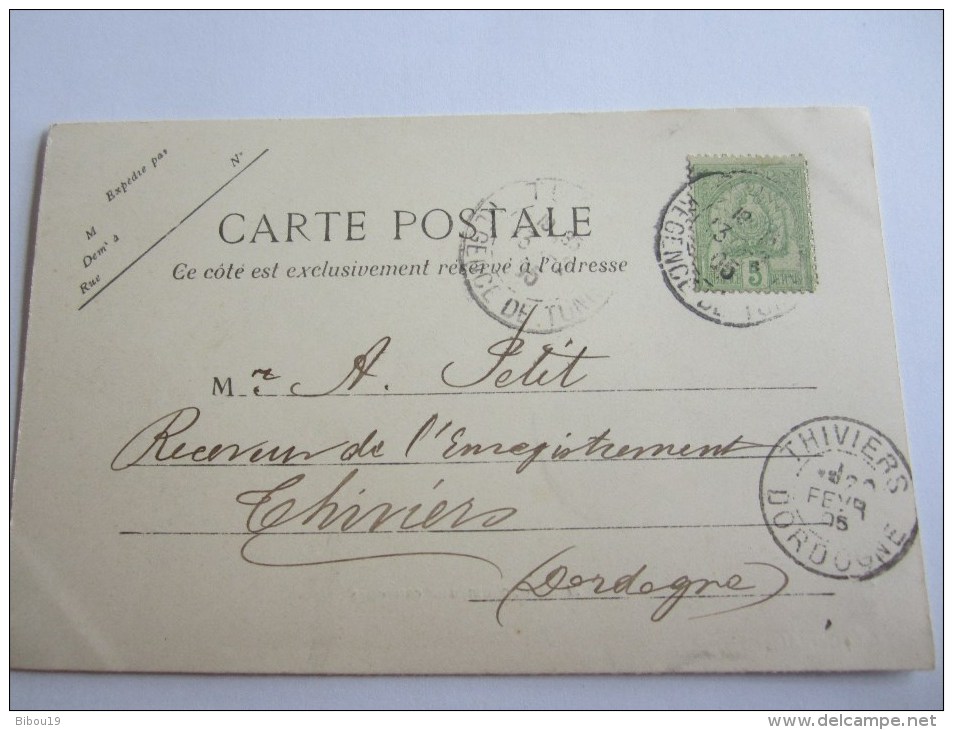 Expédié par
N°
M
Demt à
Rue
CARTE POSTALE
Ce côté est exclusivement réservé à l'adresse
REGENCE DE TUNI
REGENCE DE TUN
5
Mr A. Petit
Receveur de l'Enregistrement
Thiviers
(Dordogne)
THIVIERS
FEVR
05
DORDOGNE
Bibou19
http://www.delcampe.net